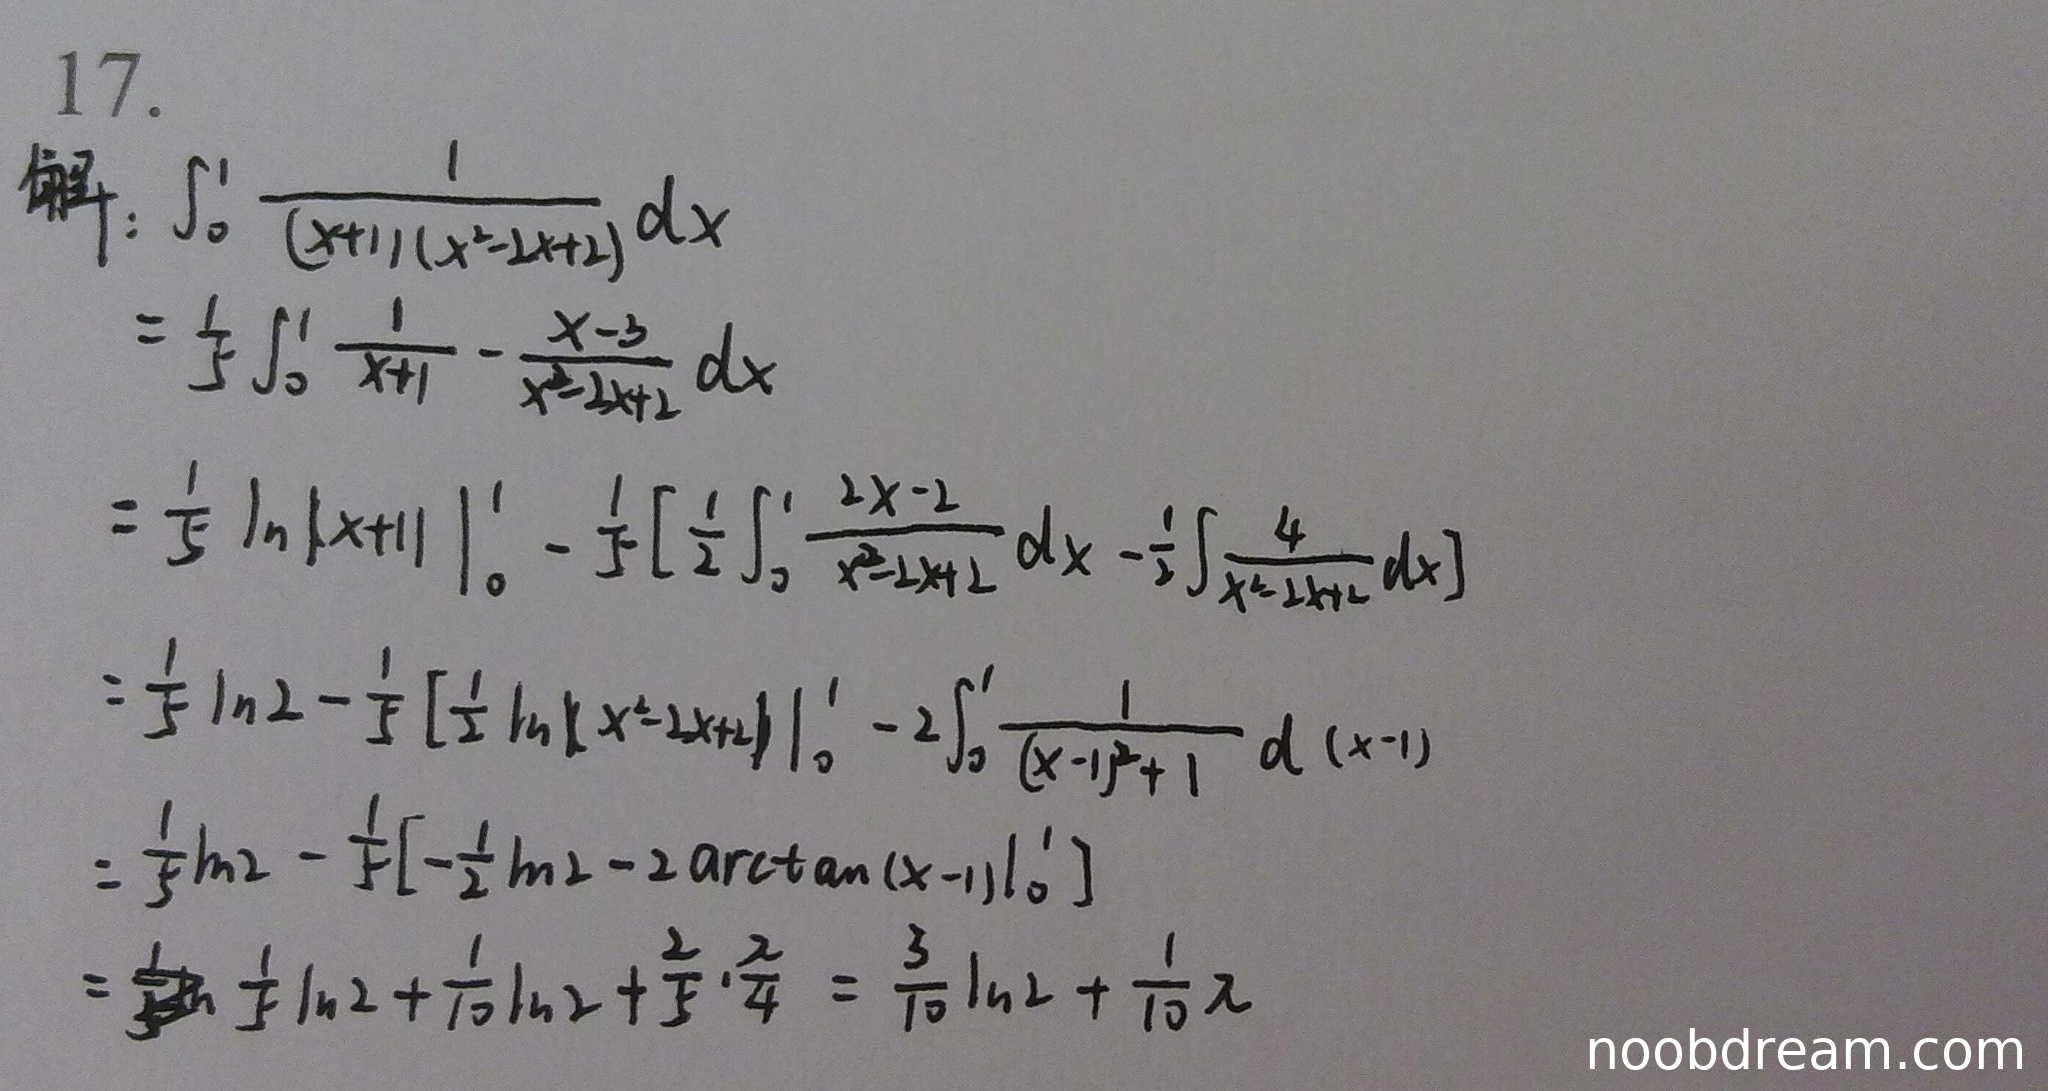 17.
解: ∫₀¹ 1/((x+1)(x²-2x+2)) dx
= 1/5 ∫₀¹ 1/(x+1) - (x-3)/(x²-2x+2) dx
= 1/5 ln|x+1| |₀¹ - 1/5 [1/2 ∫₀¹ (2x-2)/(x²-2x+2) dx - 1/2 ∫ 4/(x²-2x+2) dx]
= 1/5 ln2 - 1/5 [1/2 ln|x²-2x+2| |₀¹ - 2∫₀¹ 1/((x-1)²+1) d(x-1)
= 1/5 ln2 - 1/5 [-1/2 ln2 - 2 arctan(x-1)|₀¹]
= 1/5 ln2 + 1/10 ln2 + 2/5 · π/4 = 3/10 ln2 + 1/10 π
noobdream.com